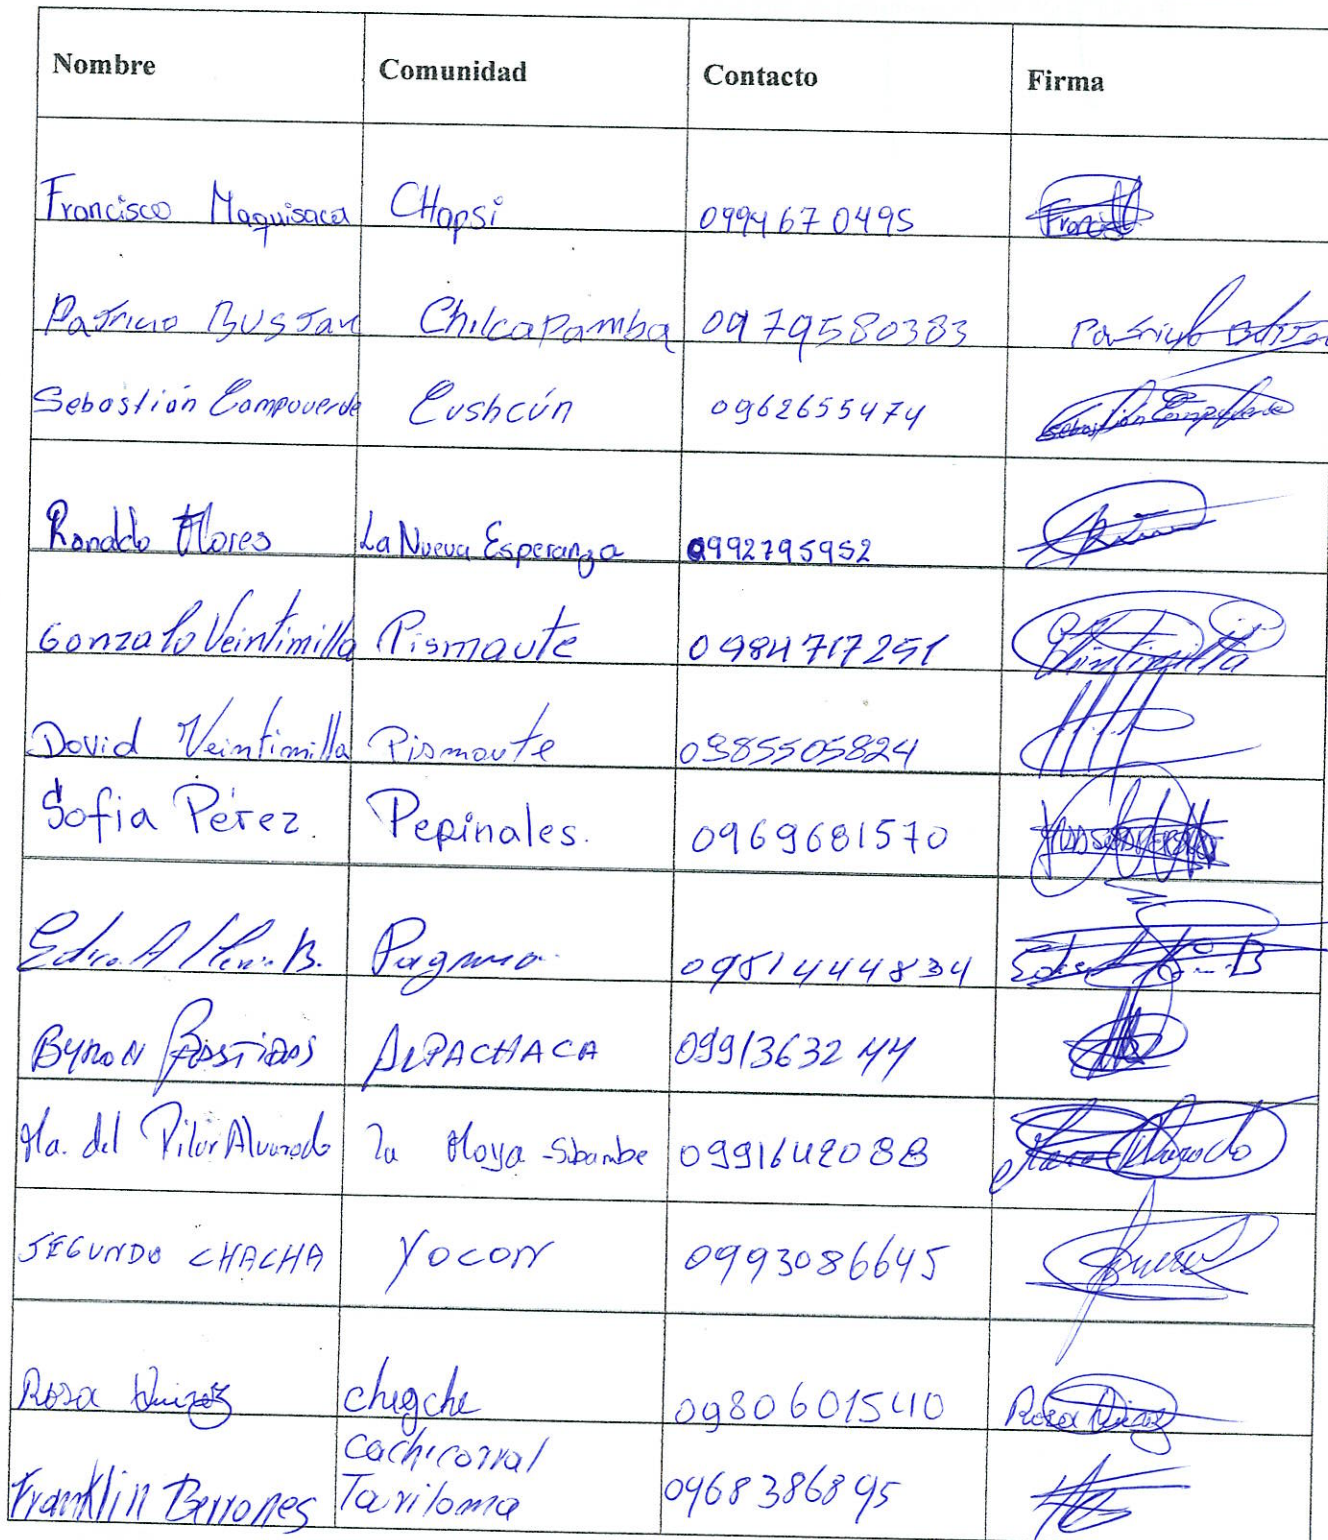 Nombre Comunidad Contacto Firma
Francisco Maquisaca CHapsi 0994670495
Patricio BUSTan Chilcapamba 0979580383
Sebastián Campoverde Cushcún 0962655474 Sebastián Campoverde
Ronaldo Flores La Nueva Esperanza 0992795952
Gonzalo Veintimilla Pismaute 0984717251
David Veintimilla Pismaute 0985505824
Sofia Pérez. Pepinales. 0969681570
B. Pagma 0981444834 B
BYRON BASTIDAS ALPACHACA 0991363244
Ma. del Pilar Alvarado La Moya - Sibambe 0991642088 Alvarado
SEGUNDO CHACHA Yocon 0993086645
Rosa chegche 0980601540 Rosa
cachicorral
Franklin Berrones Tariloma 0968386895